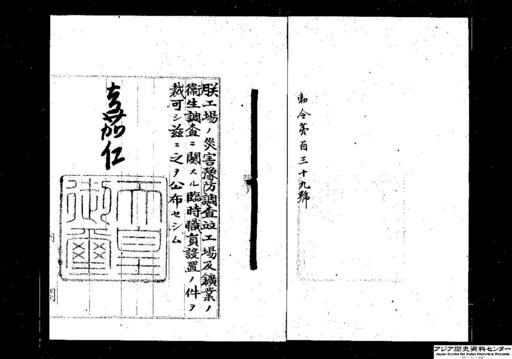 勅令第百三十九號
朕工場ノ災害豫防調査竝工場及鑛業ノ
衞生調査ニ關スル臨時職員設置ノ件ヲ
裁可シ茲ニ之ヲ公布セシム
嘉仁
天皇
御璽
アジア歴史資料センター
Japan Center for Asian Historical Records